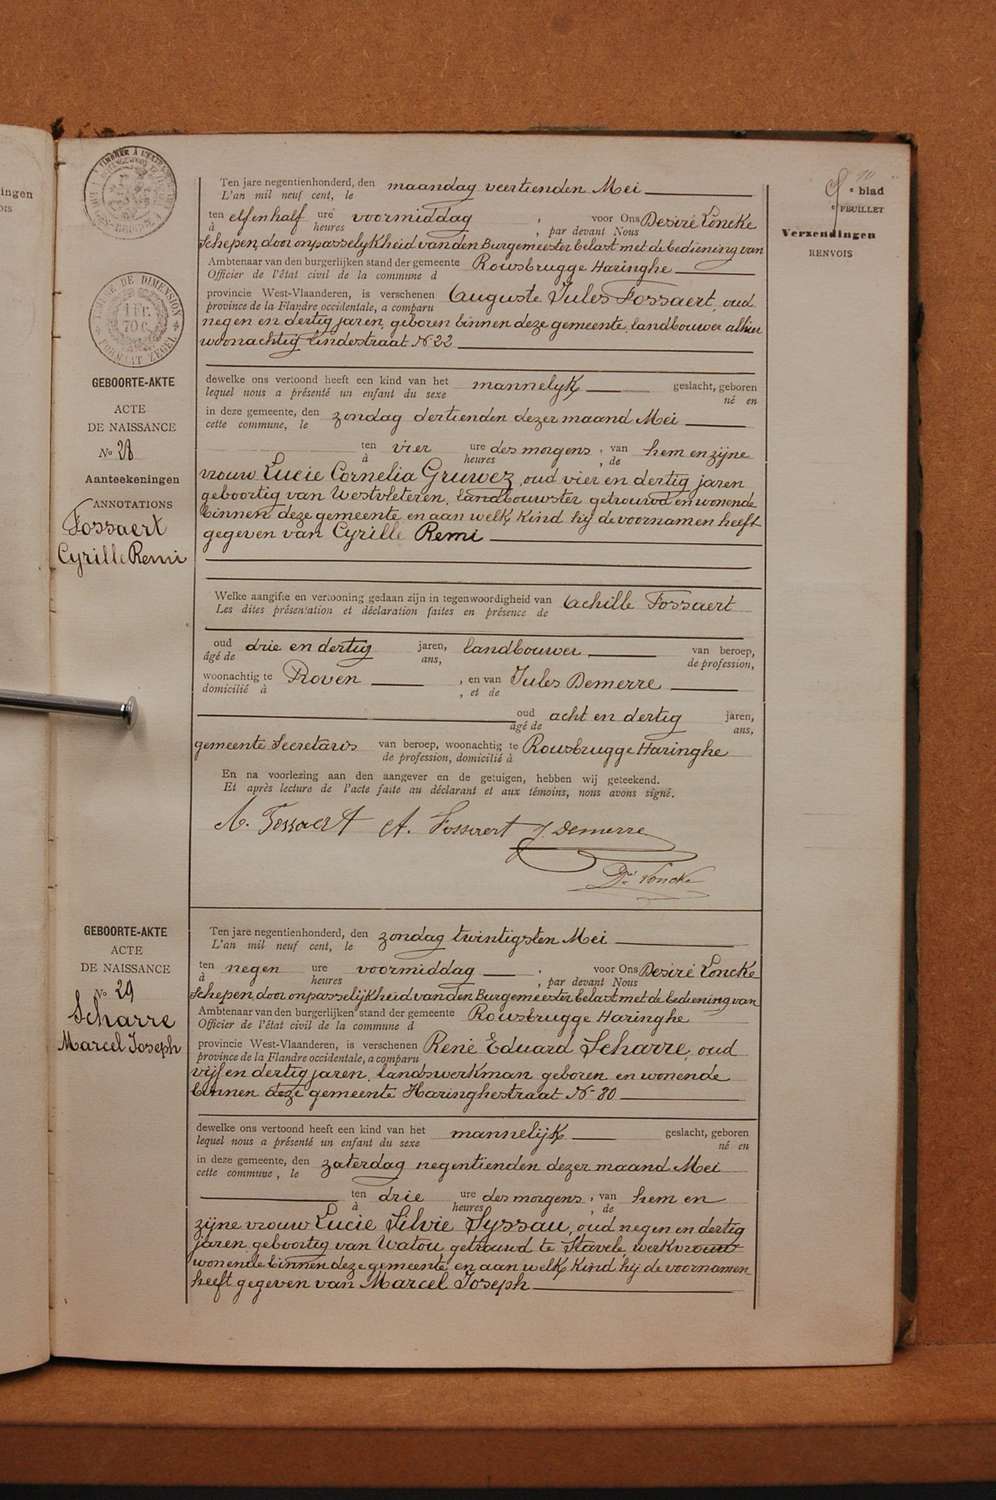 TIMBRE DE DIMENSION
1 FR. 70 C.
FORMAAT ZEGEL
blad
FEUILLET
Verzendingen
RENVOIS
GEBOORTE-AKTE
ACTE
DE NAISSANCE
No 28
Aanteekeningen
ANNOTATIONS
Fossaert
Cyrille Remi
Ten jare negentienhonderd, den maandag veertienden Mei
L'an mil neuf cent, le
ten elfenhalf ure voormiddag ; voor Ons Desiré Loncke
à heures , par devant Nous
Schepen, door onpasselykheid van den Burgemeester belast met de bediening van
Ambtenaar van den burgerlijken stand der gemeente Rousbrugge Haringhe
Officier de l'état civil de la commune d
provincie West-Vlaanderen, is verschenen Auguste Jules Fossaert, oud
province de la Flandre occidentale, a comparu
negen en dertig jaren, geboren binnen deze gemeente, landbouwer alhier
woonachtig Lindestraat No 22
dewelke ons vertoond heeft een kind van het mannelyk geslacht, geboren
lequel nous a présenté un enfant du sexe né en
in deze gemeente, den zondag dertienden dezer maand Mei
cette commune, le
ten vier ure des morgens , van hem en zijne
à heures , de
vrouw Lucie Cornelia Gruwez, oud vier en dertig jaren
geboortig van Westvleteren, landbouwster getrouwd en wonende
binnen deze gemeente en aan welk kind hij de voornamen heeft
gegeven van Cyrille Remi
Welke aangifte en vertooning gedaan zijn in tegenwoordigheid van Achille Fossaert
Les dites présentation et déclaration faites en présence de
oud drie en dertig jaren, landbouwer van beroep,
âgé de ans, de profession,
woonachtig te Proven , en van Jules Demerre
domicilié à , et de
oud acht en dertig jaren,
âgé de ans,
gemeente Secretaris van beroep, woonachtig te Rousbrugge Haringhe
de profession, domicilié à
En na voorlezing aan den aangever en de getuigen, hebben wij geteekend.
Et après lecture de l'acte faite au déclarant et aux témoins, nous avons signé.
A. Fossaert A. Fossaert J. Demerre
Dé Loncke
GEBOORTE-AKTE
ACTE
DE NAISSANCE
No 29
Scharre
Marcel Joseph
Ten jare negentienhonderd, den zondag twintigsten Mei
L'an mil neuf cent, le
ten negen ure voormiddag ; voor Ons Desiré Loncke
à heures , par devant Nous
Schepen, door onpasselijkheid van den Burgemeester belast met de bediening van
Ambtenaar van den burgerlijken stand der gemeente Rousbrugge Haringhe
Officier de l'état civil de la commune d
provincie West-Vlaanderen, is verschenen René Eduard Scharre, oud
province de la Flandre occidentale, a comparu
vijf en dertig jaren, landswerkman geboren en wonende
binnen deze gemeente Haringhestraat No 80
dewelke ons vertoond heeft een kind van het mannelijk geslacht, geboren
lequel nous a présenté un enfant du sexe né en
in deze gemeente, den zaterdag negentienden dezer maand Mei
cette commune, le
ten drie ure des morgens , van hem en
à heures , de
zijne vrouw Lucie Silvie Syssau, oud negen en dertig
jaren, geboortig van Watou, getrouwd te Stavele, werkvrouw
wonende binnen deze gemeente, en aan welk kind hij de voornamen
heeft gegeven van Marcel Joseph